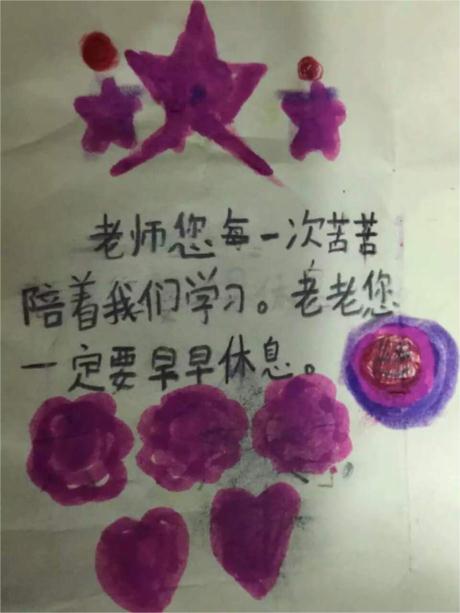 老师您每一次苦苦
陪着我们学习。老老您
一定要早早休息。